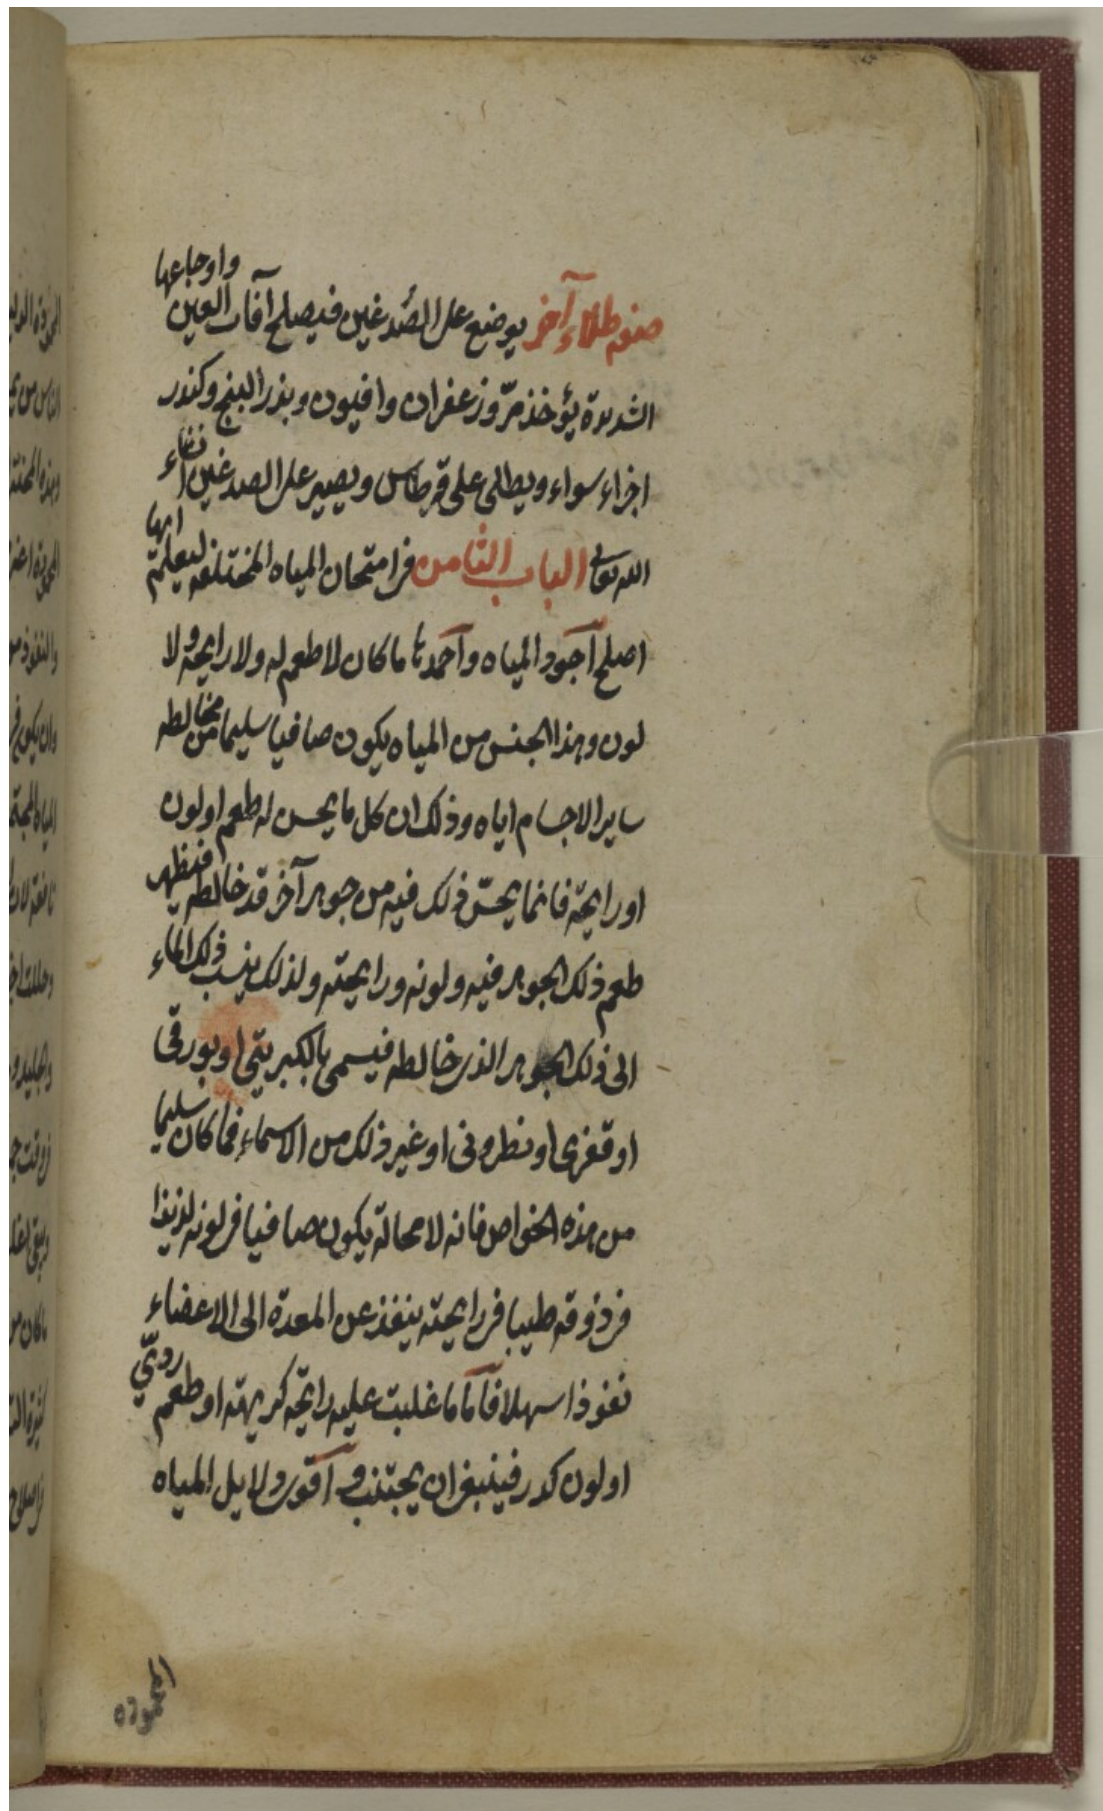 صفه طلاء آخر يوضع على الصُدغين فيصلح آفات العين واوجاعها
الشديدة يؤخذ مرّ وزعفران وافيون وبذر البنج وكندر
اجزاء سواء ويطلى على قرطاس ويصير على الصدغين انشاء
الله تعالى الباب الثامن في امتحان المياه المختلفه ليعلم ايها
اصلح آجود المياه وآحمدها ما كان لا طعم له ولا رايحة ولا
لون وهذا الجنس من المياه يكون صافيا سليما من مخالطه
ساير الاجسام اياه وذلك ان كل ما يحس له طعم او لون
او رايحة فانما يحسّ ذلك فيه من جوهر آخر قد خالطه فيظهر
طعم ذلك الجوهر فيه ولونه ورايحته ولذلك ينسب ذلك الماء
الى ذلك الجوهر الذى خالطه فيسمى بالكبريتى او بورقى
او قفرى او نطرونى او غير ذلك من الاسماء فما كان سليما
من هذه الخواص فانه لا محالة يكون صافيا فى لونه لذيذا
فى ذوقه طيبا فى رايحته ينفذ عن المعدة الى الاعضاء
نفوذا سهلا فآما ما غلبت عليه رايحة كريهته او طعم ردىّ
او لون كدر فينبغى ان يجتنب وآقوى دلايل المياه
المحموده